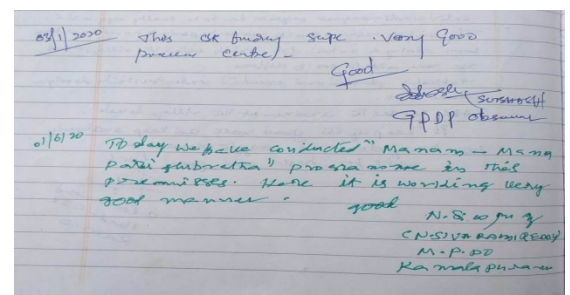 03/1/2020 This is . Very Good
process centre).
Good
SUBHOSH
GPDP observer
01/6/20 Today we have conducted "Manam - Mana
Parisubratha" programme in this
premisses. Here it is working very
good manner. good
(N.SIVA RAMI REDDY
M.P.DO
Kamalapuram